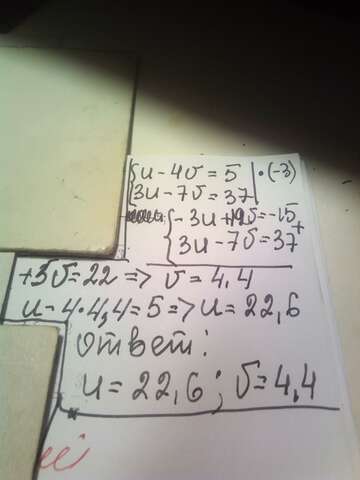 {u - 4v = 5 | · (-3)
3u - 7v = 37
{-3u + 12v = -15
3u - 7v = 37 +
+5v = 22 => v = 4,4
u - 4 * 4,4 = 5 => u = 22,6
ответ:
u = 22,6 ; v = 4,4